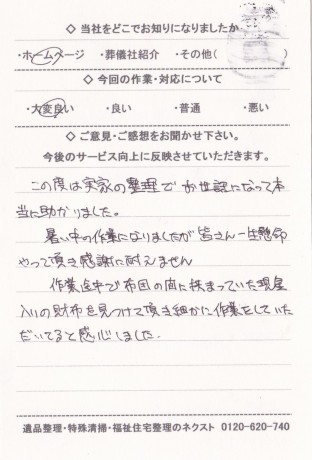 ◇ 当社をどこでお知りになりましたか
・ホームページ ・葬儀社紹介 ・その他( )
◇ 今回の作業・対応について
・大変良い ・良い ・普通 ・悪い
◇ ご意見・ご感想をお聞かせ下さい。
今後のサービス向上に反映させていただきます。
この度は実家の整理でお世話になって本
当に助かりました。
暑い中の作業になりましたが皆さん一生懸命
やって頂き感謝に耐えません
作業途中で布団の間に挟まっていた現金
入りの財布を見つけて頂き細かに作業をしていた
だいてると感心しました.
遺品整理・特殊清掃・福祉住宅整理のネクスト 0120-620-740